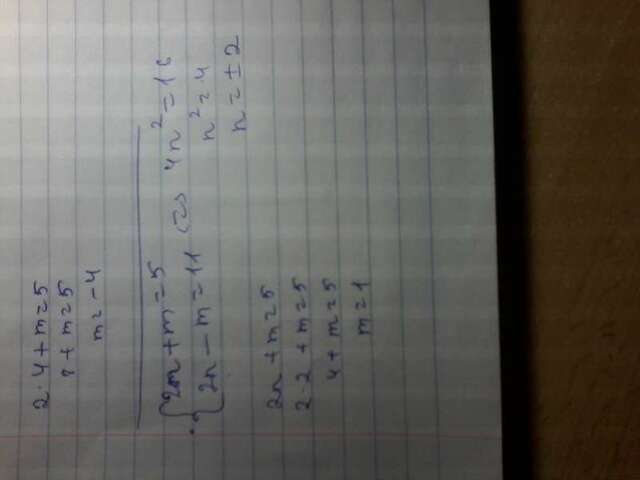 2·4+m=5
8+m=5
m=-4
2n+m=5
2n-m=11 <=> 4n²=16
n²=4
n=±2
2n+m=5
2·2+m=5
4+m=5
m=1